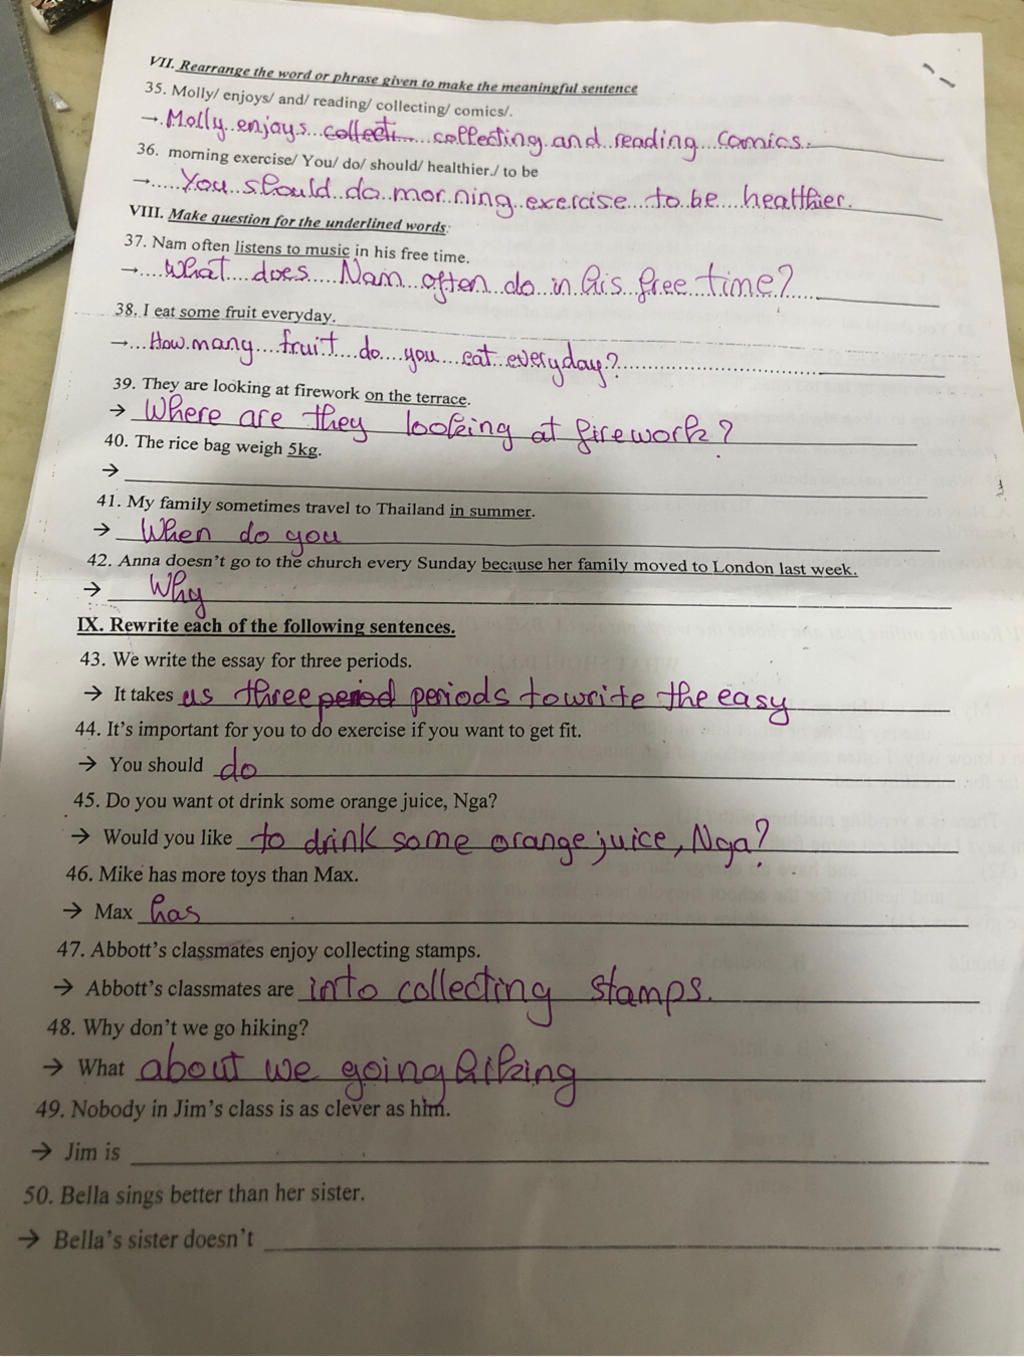 VII. Rearrange the word or phrase given to make the meaningful sentence
35. Molly/ enjoys/ and/ reading/ collecting/ comics/.
→ Molly enjoys collecti collecting and reading comics.
36. morning exercise/ You/ do/ should/ healthier./ to be
→ You should do morning exercise to be healthier.
VIII. Make question for the underlined words:
37. Nam often listens to music in his free time.
→ What does Nam often do in his free time?
38. I eat some fruit everyday.
→ How many fruit do you eat everyday?
39. They are looking at firework on the terrace.
→ Where are they looking at firework?
40. The rice bag weigh 5kg.
→
41. My family sometimes travel to Thailand in summer.
→ When do you
42. Anna doesn't go to the church every Sunday because her family moved to London last week.
→ Why
IX. Rewrite each of the following sentences.
43. We write the essay for three periods.
→ It takes us three period periods to write the easy
44. It's important for you to do exercise if you want to get fit.
→ You should do
45. Do you want ot drink some orange juice, Nga?
→ Would you like to drink some orange juice, Nga?
46. Mike has more toys than Max.
→ Max has
47. Abbott's classmates enjoy collecting stamps.
→ Abbott's classmates are into collecting stamps.
48. Why don't we go hiking?
→ What about we going hiking
49. Nobody in Jim's class is as clever as him.
→ Jim is
50. Bella sings better than her sister.
→ Bella's sister doesn't